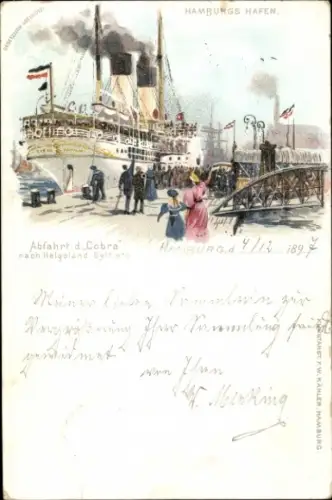 HAMBURGS HAFEN.
Abfahrt d. „Cobra"
nach Helgoland Sylt etc.
HAMBURG, d. 4/12 1897
Meiner lieben Sammlerin zur
Vergrößerung Ihrer Sammlung
gewidmet
von Ihrem
KUNSTANST. F. W. KÄHLER, HAMBURG